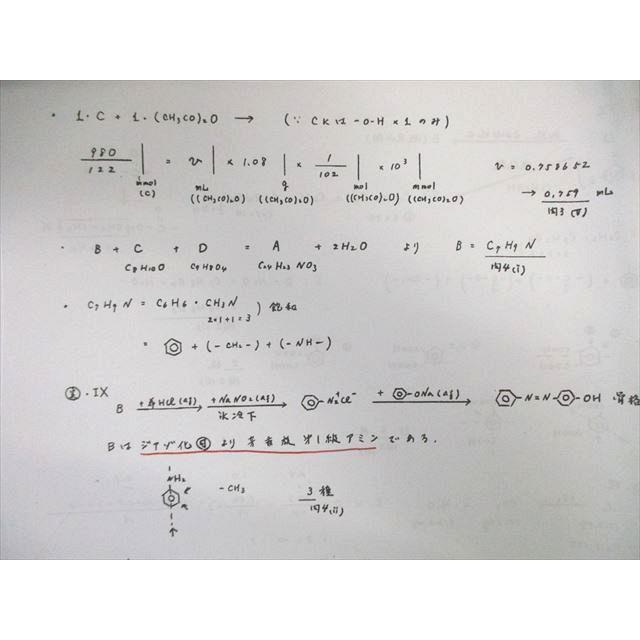 ・ 1・C + 1・(CH₃CO)₂O → (∵ Cには -O-H ×1 のみ)
980/122 | = v | × 1.08 | × 1/102 | × 10³ | v = 0.758652
mmol (C) mL ((CH₃CO)₂O) g ((CH₃CO)₂O) mol ((CH₃CO)₂O) mmol ((CH₃CO)₂O) → 0.759 mL
問3(ⅱ)
・ B + C + D = A + 2H₂O より B = C₇H₉N
C₈H₁₀O C₉H₈O₄ C₂₄H₂₃NO₃ 問4(ⅰ)
・ C₇H₉N = C₆H₆・CH₃N ) 飽和
2×1+1=3
= + (-CH₂-) + (-NH-)
・IX
B +希HCl(aq) → +NaNO₂(aq) 氷冷下 → -N₂⁺Cl⁻ + -ONa(aq) → -N=N- -OH 骨格
Bは ジアゾ化 より 芳香族第1級アミン である.
NH₂ -CH₃ 3種
問4(ⅱ)